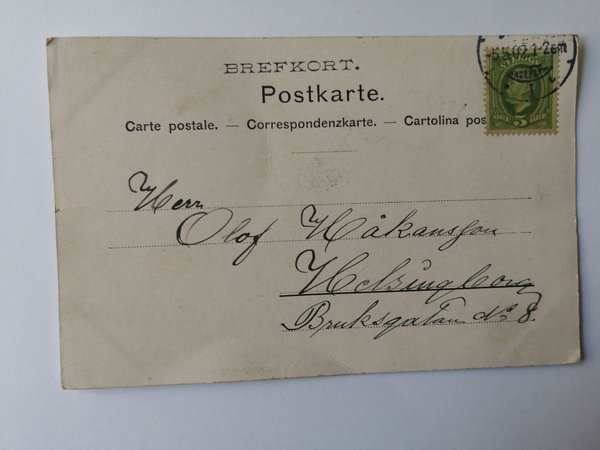 BREFKORT.
Postkarte.
Carte postale. — Correspondenzkarte. — Cartolina pos
SVERIGE
5.5.02 1-2em
ÖRE 5 ÖRE
Herr
Olof Håkansson
Helsingborg
Bruksgatan No 8.